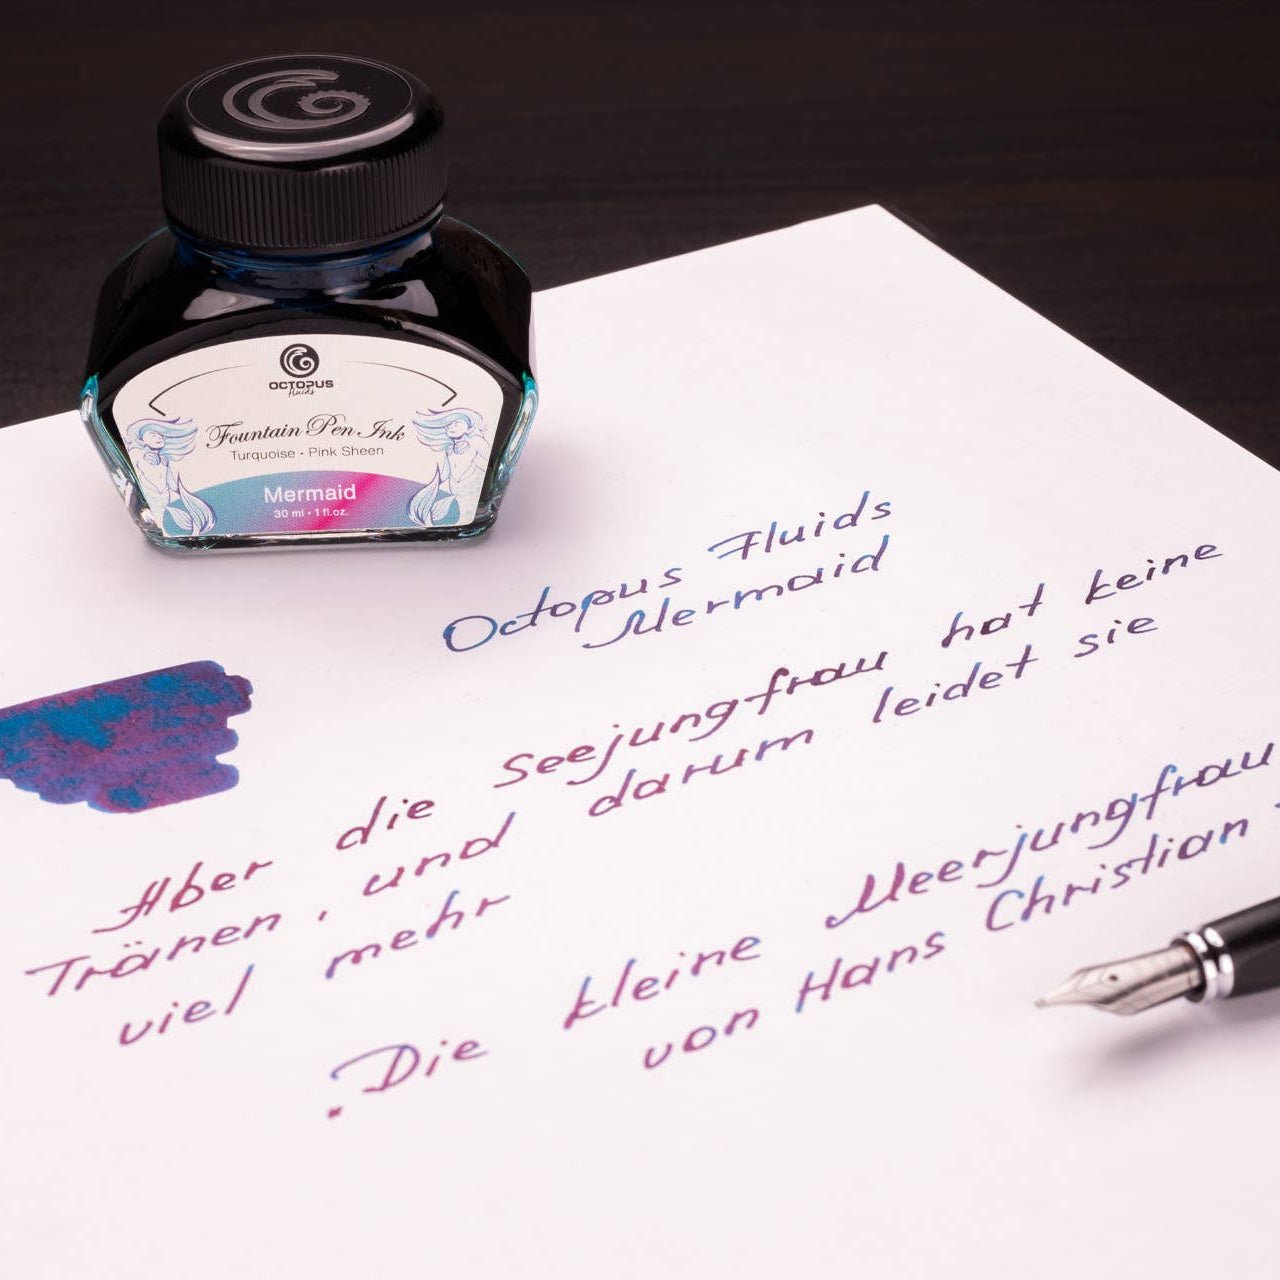 OCTOPUS
fluids
Fountain Pen Ink
Turquoise • Pink Sheen
Mermaid
30 ml • 1 fl.oz.
Octopus Fluids
Mermaid
Aber die Seejungfrau hat keine
Tränen, und darum leidet sie
viel mehr
"Die kleine Meerjungfrau
von Hans Christian